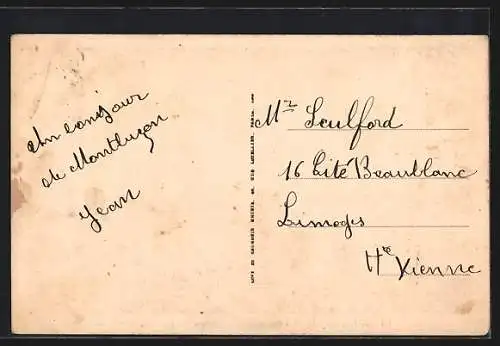 Un bonjour
de Montluçon
Jean
Mr Seulford
16 Cité Beaublanc
Limoges
Hte Vienne